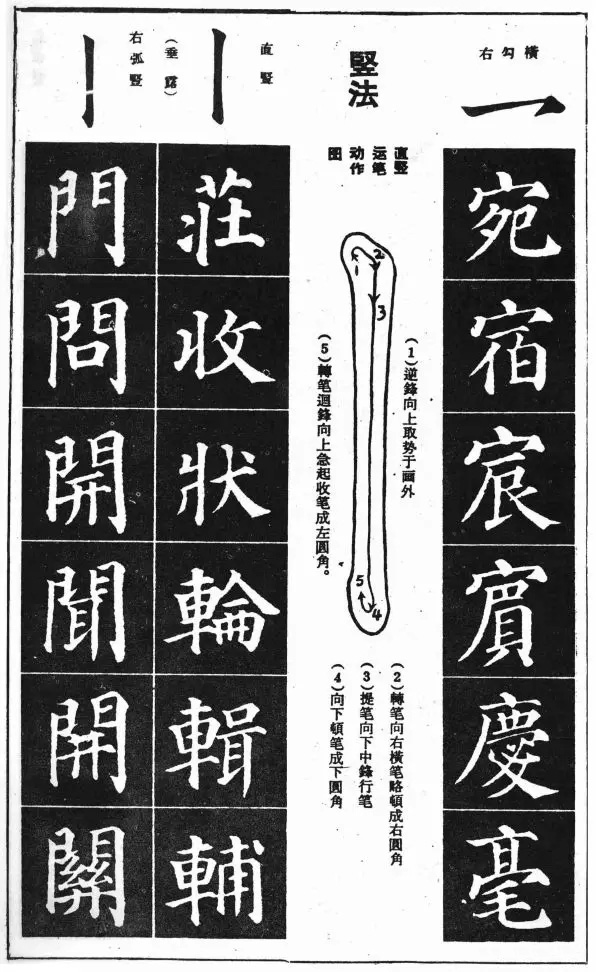 橫勾右
宛
宿
宸
賓
慶
毫
豎法
直豎
运笔
动作
图
1
2
3
4
5
(1)逆鋒向上取势于画外
(2)轉笔向右橫笔略頓成右圓角
(3)提笔向下中鋒行笔
(4)向下頓笔成下圓角
(5)轉笔迴鋒向上急起收笔成左圓角。
直豎
莊
收
狀
輪
輯
輔
(垂露)
右弧豎
門
問
開
聞
開
關